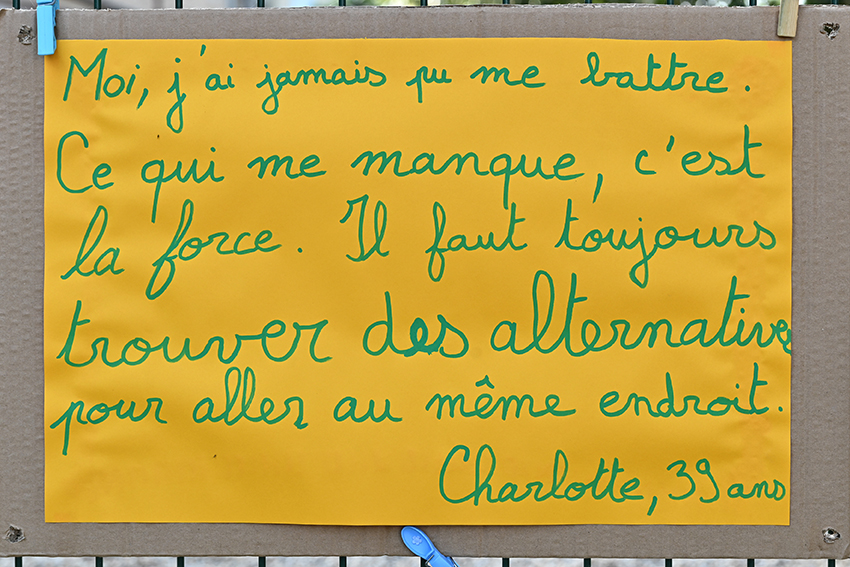 Moi, j'ai jamais pu me battre.
Ce qui me manque, c'est
la force. Il faut toujours
trouver des alternatives
pour aller au même endroit.
Charlotte, 39 ans